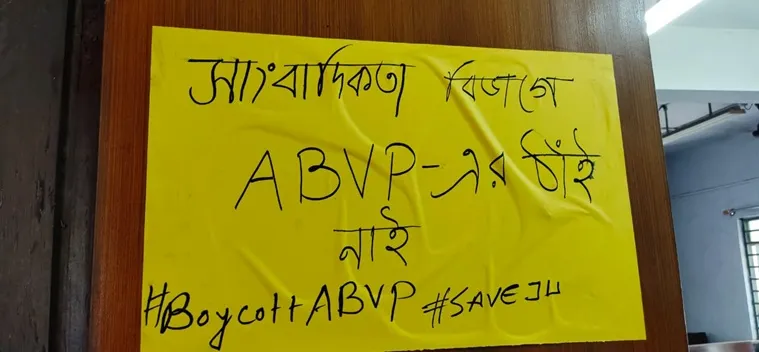 সাংবাদিকতা বিভাগে
ABVP-এর ঠাঁই
নাই
#BoycottABVP #SAVEJU